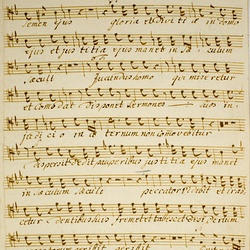 semen ejus gloria et divitiæ in domo
ejus et justitia ejus manet in sæculum
sæculi Jucundus homo qui miseretur
et comodat disponet sermones suos in
judicio in æternum non comovebitur
Dispersit dedit pauperibus justitia ejus manet
in sæculum sæculi peccator videbit et irass
cetur dentibus suis fremet et tabescet desiderium